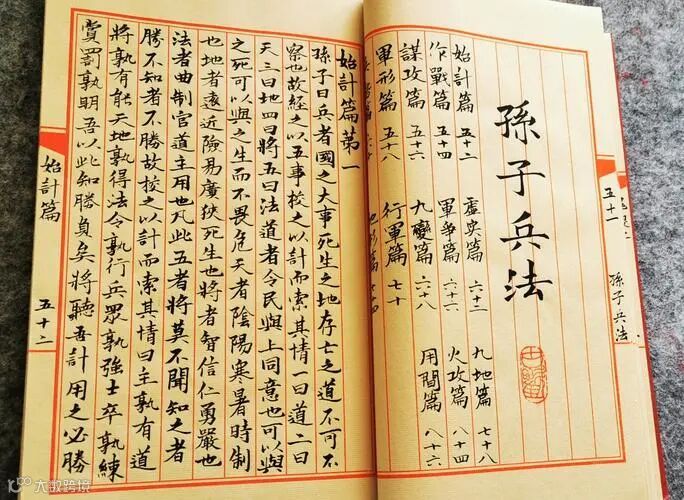 孫子兵法
五十一
孫子兵法
始計篇 五十二 虛實篇 六十二 九地篇 七十八
作戰篇 五十四 軍爭篇 六十六 火攻篇 八十四
謀攻篇 五十六 九變篇 六十八 用間篇 八十六
軍形篇 五十八 行軍篇 七十
始計篇第一
孫子曰兵者國之大事死生之地存亡之道不可不
察也故經之以五事校之以計而索其情一曰道二曰
天三曰地四曰將五曰法道者令民與上同意也可以與
之死可以與之生而不畏危天者陰陽寒暑時制
也地者遠近險易廣狹死生也將者智信仁勇嚴也
法者曲制官道主用也凡此五者將莫不聞知之者
勝不知者不勝故校之以計而索其情曰主孰有道
將孰有能天地孰得法令孰行兵眾孰強士卒孰練
賞罰孰明吾以此知勝負矣將聽吾計用之必勝
始計篇
五十二
大数跨境